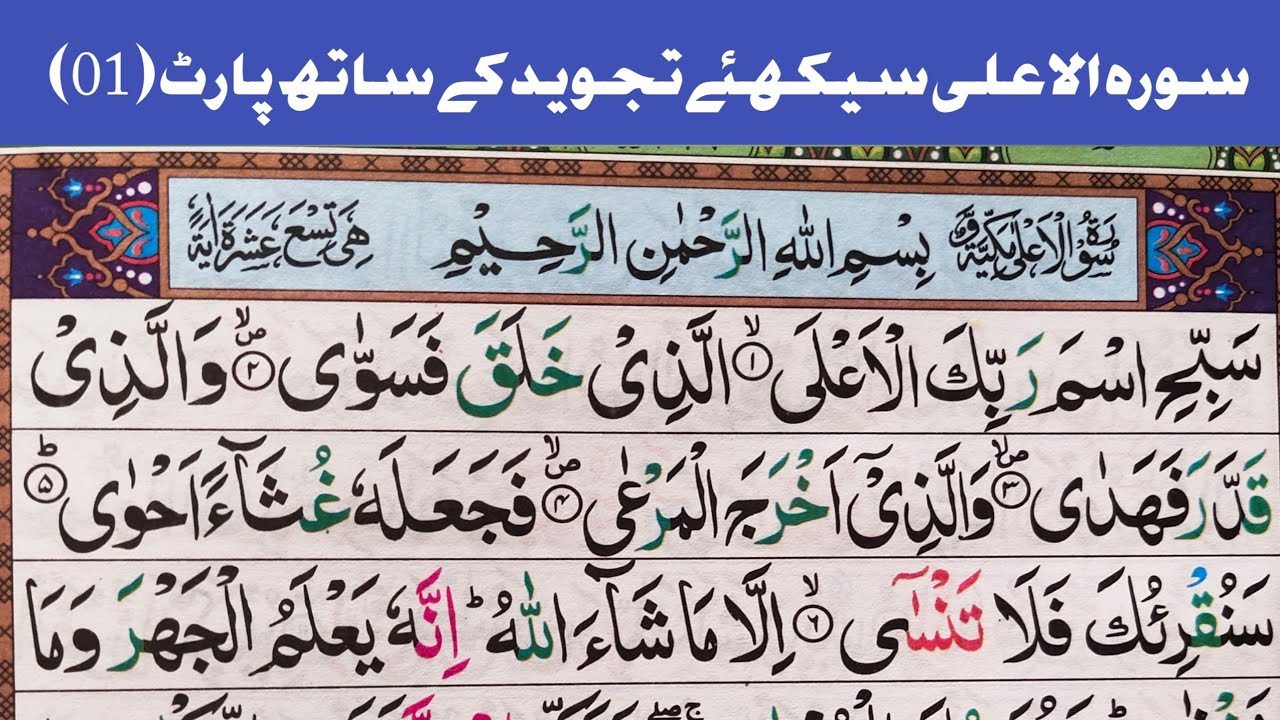 سورہ الاعلی سیکھئے تجوید کے ساتھ پارٹ (01)
سُوْرَةُ الْاَعْلٰى مَكِّيَّةٌ وَّ بِسْمِ اللّٰهِ الرَّحْمٰنِ الرَّحِيْمِ هِيَ تِسْعَ عَشَرَةَ اٰيَةً
سَبِّحِ اسْمَ رَبِّكَ الْاَعْلَى ۙ‏﴿۱﴾ الَّذِىْ خَلَقَ فَسَوّٰى ۙ‏ۖ﴿۲﴾ وَالَّذِىْ
قَدَّرَ فَهَدٰى ۙ‏ۖ﴿۳﴾ وَالَّذِىْۤ اَخْرَجَ الْمَرْعٰى ۙ‏ۖ﴿۴﴾ فَجَعَلَهٗ غُثَآءً اَحْوٰىؕ‏﴿۵﴾
سَنُقْرِئُكَ فَلَا تَنْسٰٓى ۙ‏﴿۶﴾ اِلَّا مَا شَآءَ اللّٰهُ‌ؕ اِنَّهٗ يَعْلَمُ الْجَهْرَ وَمَا